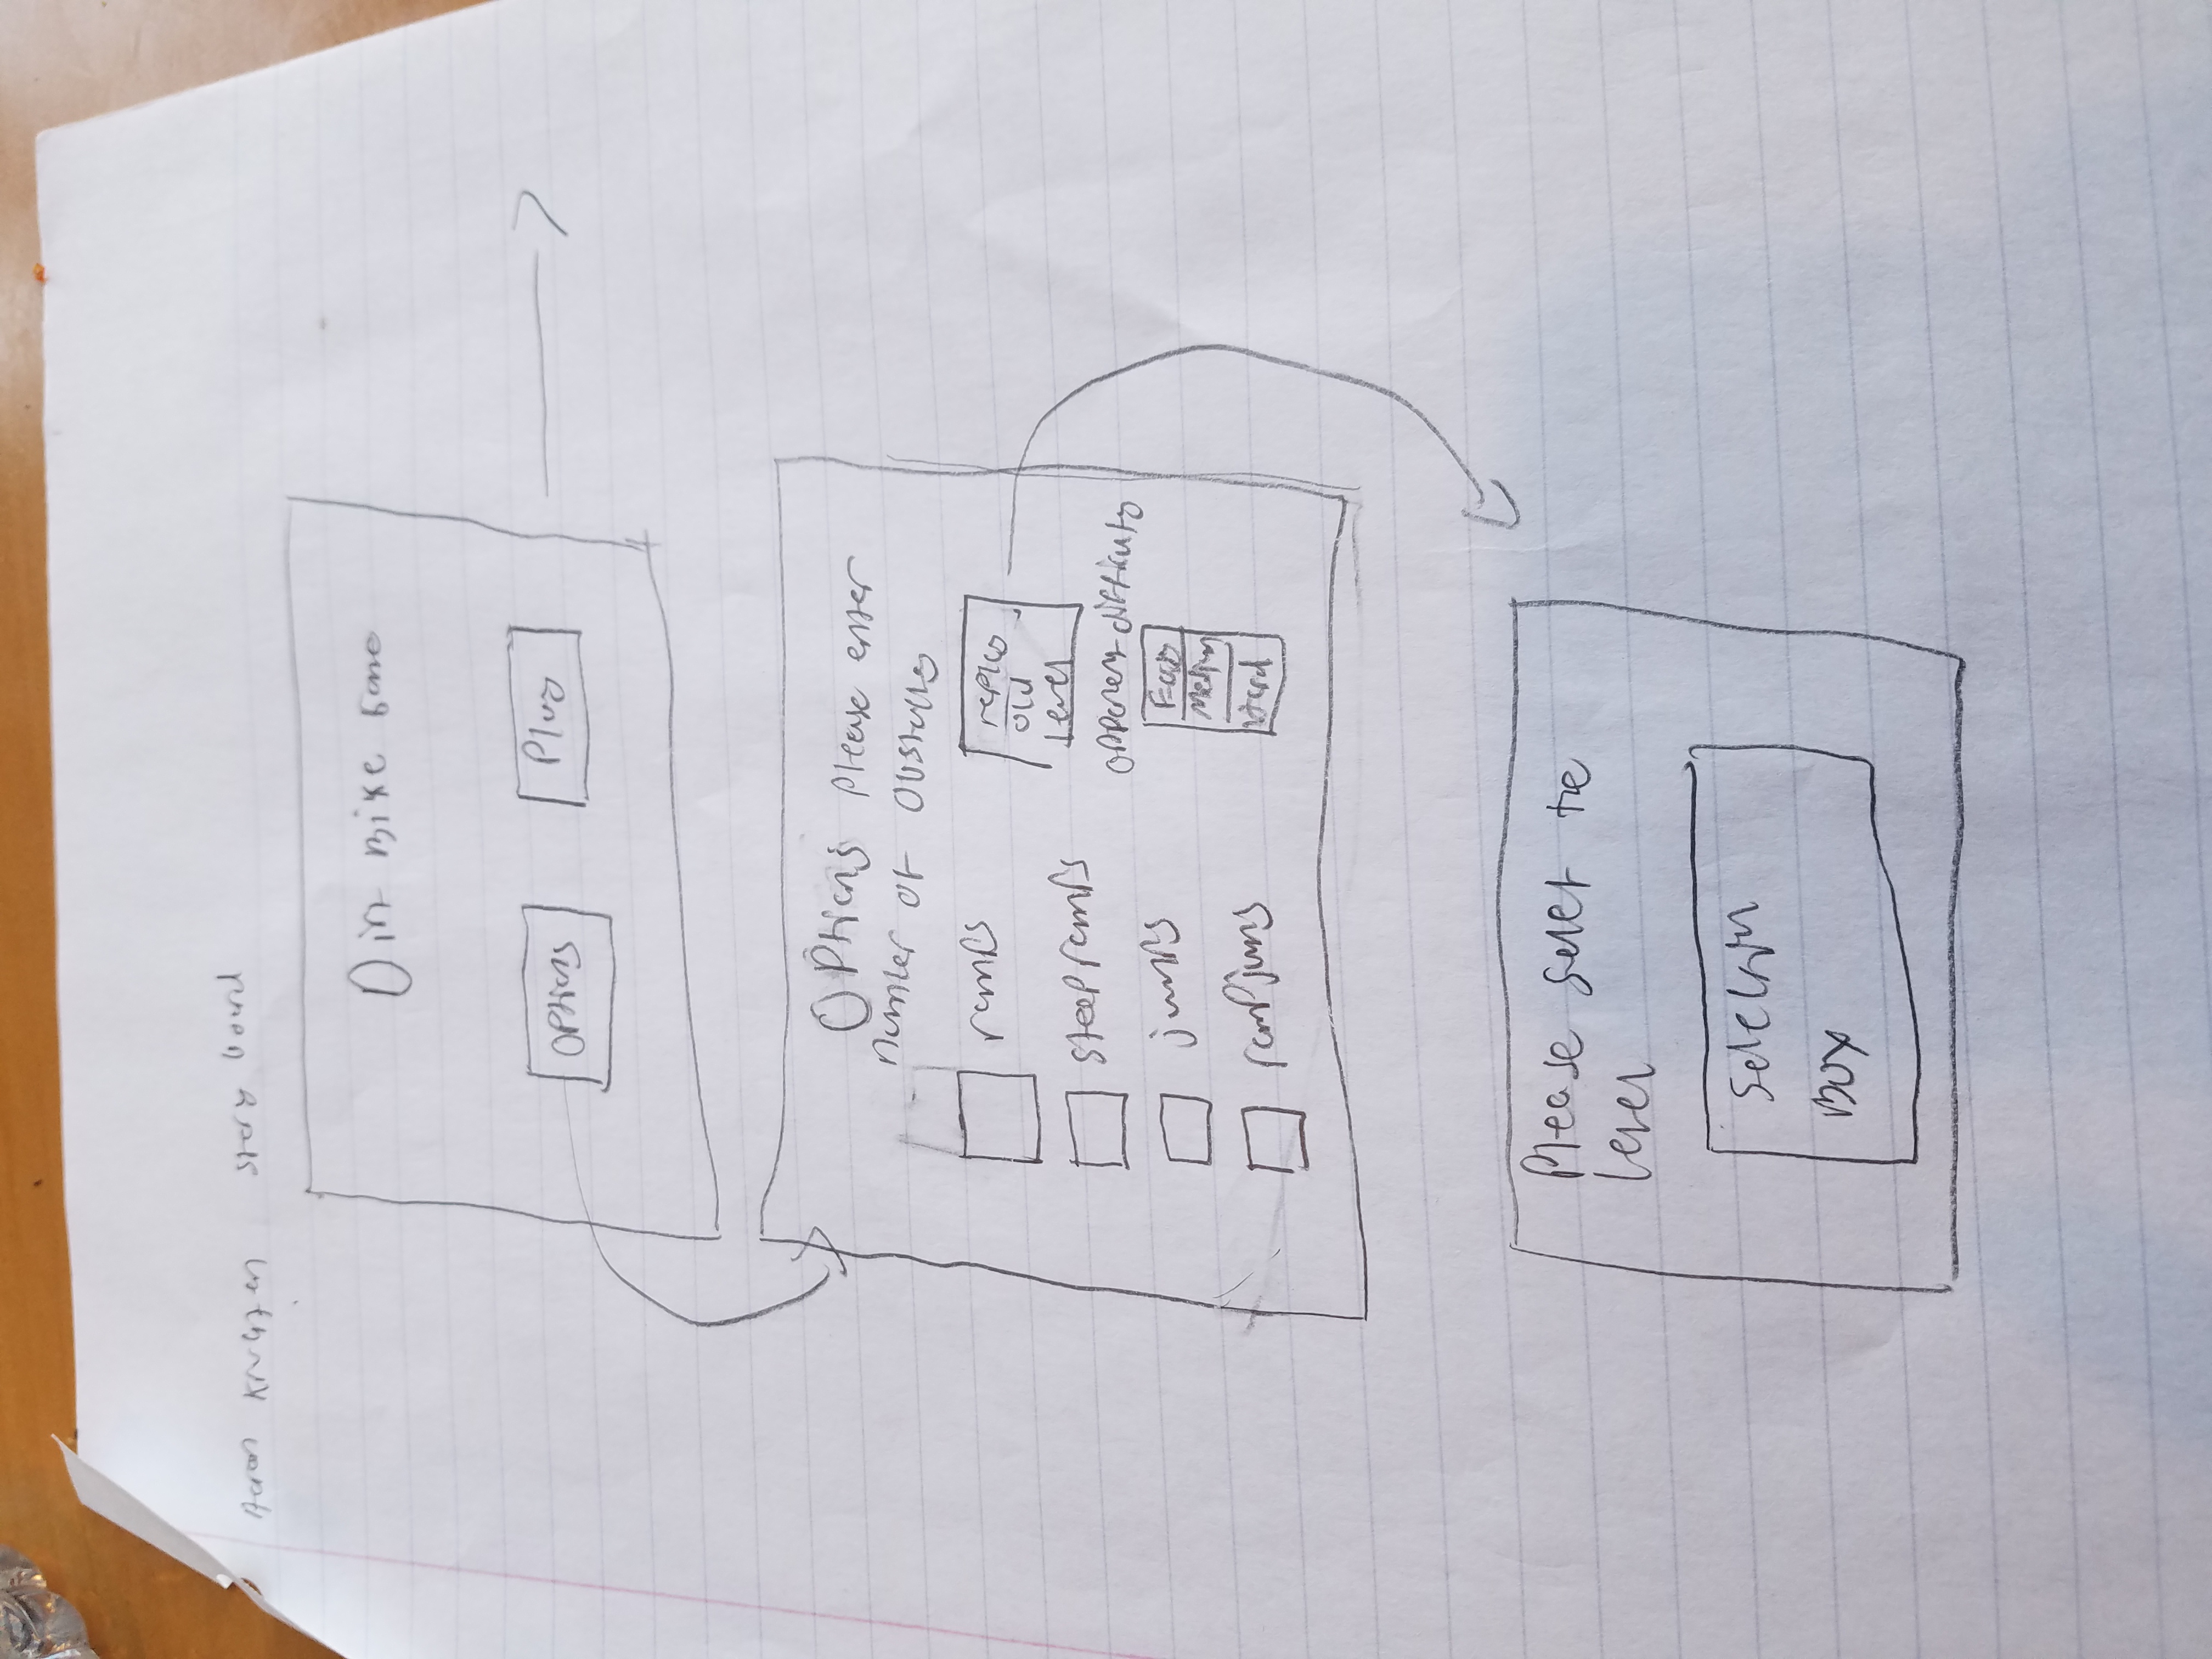 Aaron story board
Dirt Bike Game
Options
Play
Options Please enter
number of obstacles
ramps
steep ramps
jumps
ramp jumps
replay
old
level
opponent difficulty
Easy
Medium
Hard
Please select the
level
Selection
Box